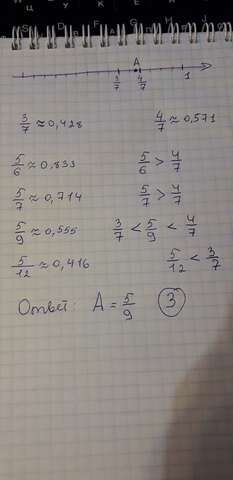 A
3/7 4/7 1
3/7 ≈ 0,428 4/7 ≈ 0,571
5/6 ≈ 0,833 5/6 > 4/7
5/7 ≈ 0,714 5/7 > 4/7
5/9 ≈ 0,555 3/7 < 5/9 < 4/7
5/12 ≈ 0,416 5/12 < 3/7
Ответ: A = 5/9 3